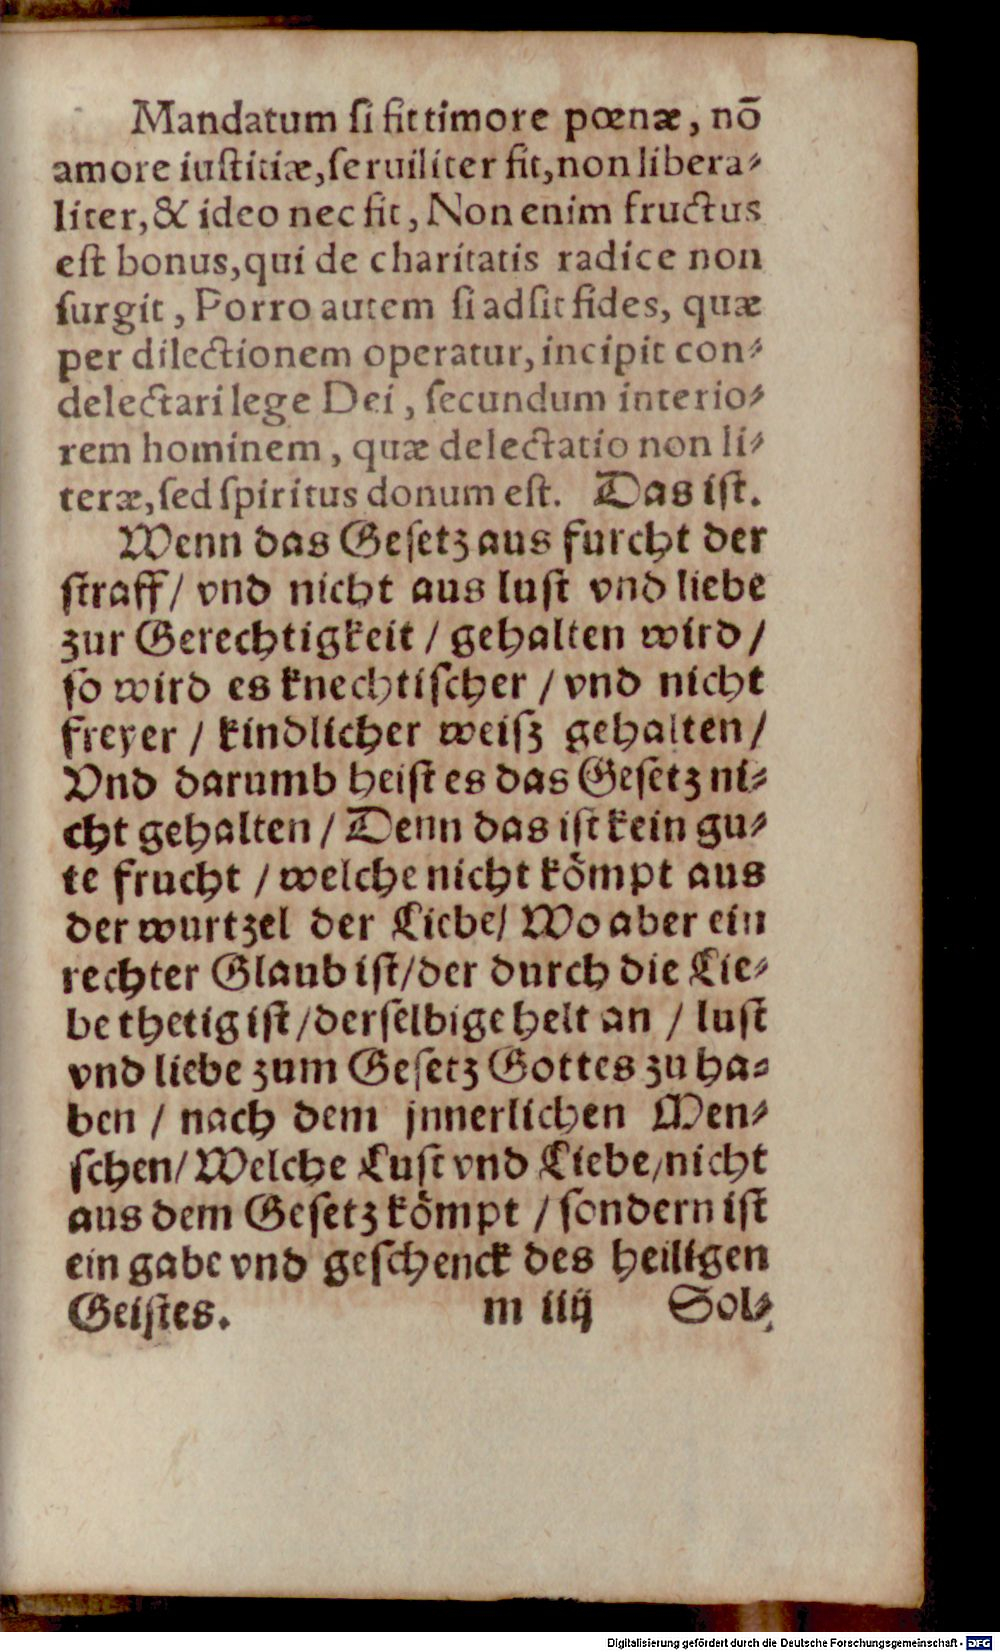 Mandatum ſi fit timore pœnæ, nō
amore iuſtitiæ, ſeruiliter fit, non libera⸗
liter, & ideo nec fit, Non enim fructus
eſt bonus, qui de charitatis radice non
ſurgit, Porro autem ſi adſit fides, quæ
per dilectionem operatur, incipit con⸗
delectari lege Dei, ſecundum interio⸗
rem hominem, quæ delectatio non li⸗
teræ, ſed ſpiritus donum eſt. Das iſt.
Wenn das Geſetz aus furcht der
ſtraff / vnd nicht aus luſt vnd liebe
zur Gerechtigkeit / gehalten wird /
ſo wird es knechtiſcher / vnd nicht
freyer / kindlicher weiſz gehalten /
Vnd darumb heiſt es das Geſetz ni⸗
cht gehalten / Denn das iſt kein gu⸗
te frucht / welche nicht kömpt aus
der wurtzel der Liebe / Wo aber ein
rechter Glaub iſt / der durch die Lie⸗
be thetig iſt / derſelbige helt an / luſt
vnd liebe zum Geſetz Gottes zu ha⸗
ben / nach dem jnnerlichen Men⸗
ſchen / Welche Luſt vnd Liebe / nicht
aus dem Geſetz kömpt / ſondern iſt
ein gabe vnd geſchenck des heiligen
Geiſtes. m iiij Sol⸗
Digitalisierung gefördert durch die Deutsche Forschungsgemeinschaft - DFG